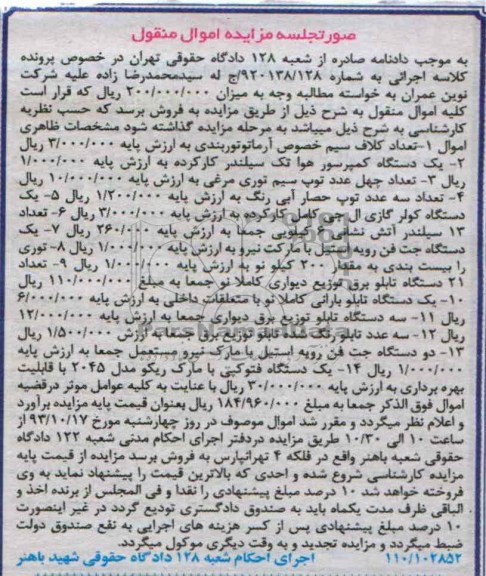 صورتجلسه مزایده اموال منقول
به موجب دادنامه صادره از شعبه ۱۲۸ دادگاه حقوقی تهران در خصوص پرونده
کلاسه اجرائی به شماره ۹۲۰۱۳۸/۱۲۸/ج له سیدمحمدرضا زاده علیه شرکت
نوین عمران به خواسته مطالبه وجه به میزان ۲۰۰/۰۰۰/۰۰۰ ریال که قرار است
کلیه اموال منقول به شرح ذیل از طریق مزایده به فروش برسد که حسب نظریه
کارشناسی به شرح ذیل میباشد به مرحله مزایده گذاشته شود مشخصات ظاهری
اموال ۱-تعداد کلاف سیم خصوص آرماتوربندی به ارزش پایه ۳/۰۰۰/۰۰۰ ریال
۲- یک دستگاه کمپرسور هوا تک سیلندر کارکرده به ارزش پایه ۱/۰۰۰/۰۰۰
ریال ۳- تعداد چهل عدد توپ سیم توری مرغی به ارزش پایه ۱۰/۰۰۰/۰۰۰ ریال
۴- تعداد سه عدد توپ حصار آبی رنگ به ارزش پایه ۱/۲۰۰/۰۰۰ ریال ۵- یک
دستگاه کولر گازی ال جی کامل کارکرده به ارزش پایه ۳/۰۰۰/۰۰۰ ریال ۶- تعداد
۱۳ سیلندر آتش نشانی ۶ کیلویی جمعا به ارزش پایه ۲۶۰/۰۰۰ ریال ۷- یک
دستگاه جت فن رویه استیل با مارکت نیرو به ارزش پایه ۱/۰۰۰/۰۰۰ ریال ۸- توری
را بیست بندی به مقدار ۲۰۰ کیلو نو به ارزش پایه ۱/۰۰۰/۰۰۰ ریال ۹- تعداد
۲۱ دستگاه تابلو برق توزیع دیواری کاملا نو جمعا به مبلغ ۱۱۰/۰۰۰/۰۰۰ ریال
۱۰- یک دستگاه تابلو بارانی کاملا نو با متعلقات داخلی به ارزش پایه ۶/۰۰۰/۰۰۰
ریال ۱۱- سه دستگاه تابلو توزیع برق دیواری جمعا به ارزش پایه ۱۲/۰۰۰/۰۰۰
ریال ۱۲- سه عدد تابلو رنگ شده تابلو توزیع برق جمعا به ارزش ۱/۵۰۰/۰۰۰ ریال
۱۳- دو دستگاه جت فن رویه استیل با مارک نیرو مستعمل جمعا به ارزش پایه
۱/۰۰۰/۰۰۰ ریال ۱۴- یک دستگاه فتوکپی با مارک ریکو مدل ۲۰۴۵ با قابلیت
بهره برداری به ارزش پایه ۳۰/۰۰۰/۰۰۰ ریال با عنایت به کلیه عوامل موثر درقضیه
اموال فوق الذکر جمعا به مبلغ ۱۸۴/۹۶۰/۰۰۰ ریال بعنوان قیمت پایه مزایده برآورد
و اعلام نظر میگردد و مقرر شد اموال موصوف در روز چهارشنبه مورخ ۹۳/۱۰/۱۷ از
ساعت ۱۰ الی ۱۰/۳۰ طریق مزایده دردفتر اجرای احکام مدنی شعبه ۱۲۲ دادگاه
حقوقی شعبه باهنر واقع در فلکه ۴ تهرانپارس به فروش برسد مزایده از قیمت پایه
مزایده کارشناسی شروع شده و احدی که بالاترین قیمت را پیشنهاد نماید به وی
فروخته خواهد شد ۱۰ درصد مبلغ پیشنهادی را نقدا و فی المجلس از برنده اخذ و
الباقی ظرف مدت یکماه باید به صندوق دادگستری تودیع گردد در غیر اینصورت
۱۰ درصد مبلغ پیشنهادی پس از کسر هزینه های اجرایی به نفع صندوق دولت
ضبط میگردد و مزایده تجدید و به وقت دیگری موکول میگردد.
۱۱۰/۱۰۲۸۵۲ اجرای احکام شعبه ۱۲۸ دادگاه حقوقی شهید باهنر